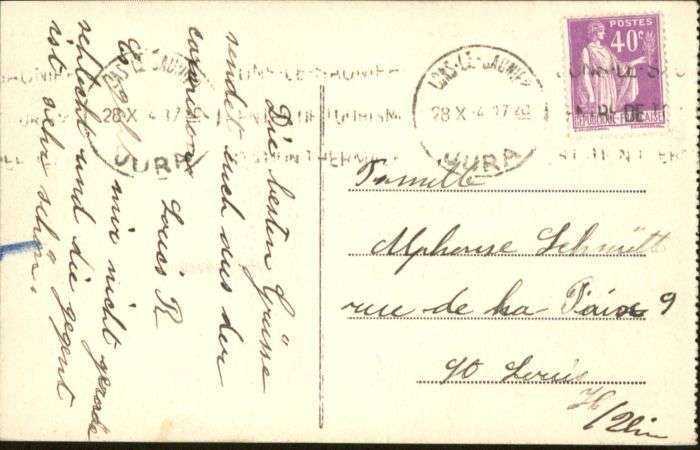 LONS-LE-SAUNIER
28 X 4 17 30
JURA
LONS-LE-SAUNIER
28 X 4 17 30
JURA
POSTES
40c
REPUBLIQUE-FRANÇAISE
Die besten Grüsse
sendet euch aus der
Louis R
Es mir nicht gerade
schlecht und die gegent
ist sehr schön.
Famille
Alphonse Schmitt
rue de la Paix 9
St Louis
H/Rhin